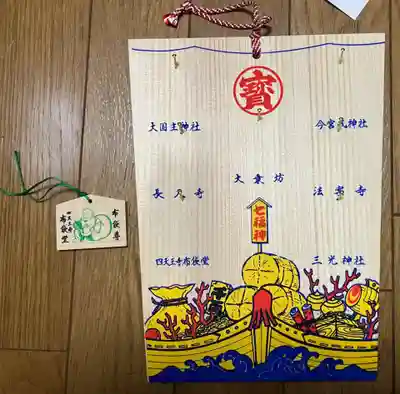 寶
大国主神社
今宮戎神社
長久寺
大乗坊
法案寺
七福神
四天王寺布袋堂
三光神社
布袋尊
四天王寺
布袋堂